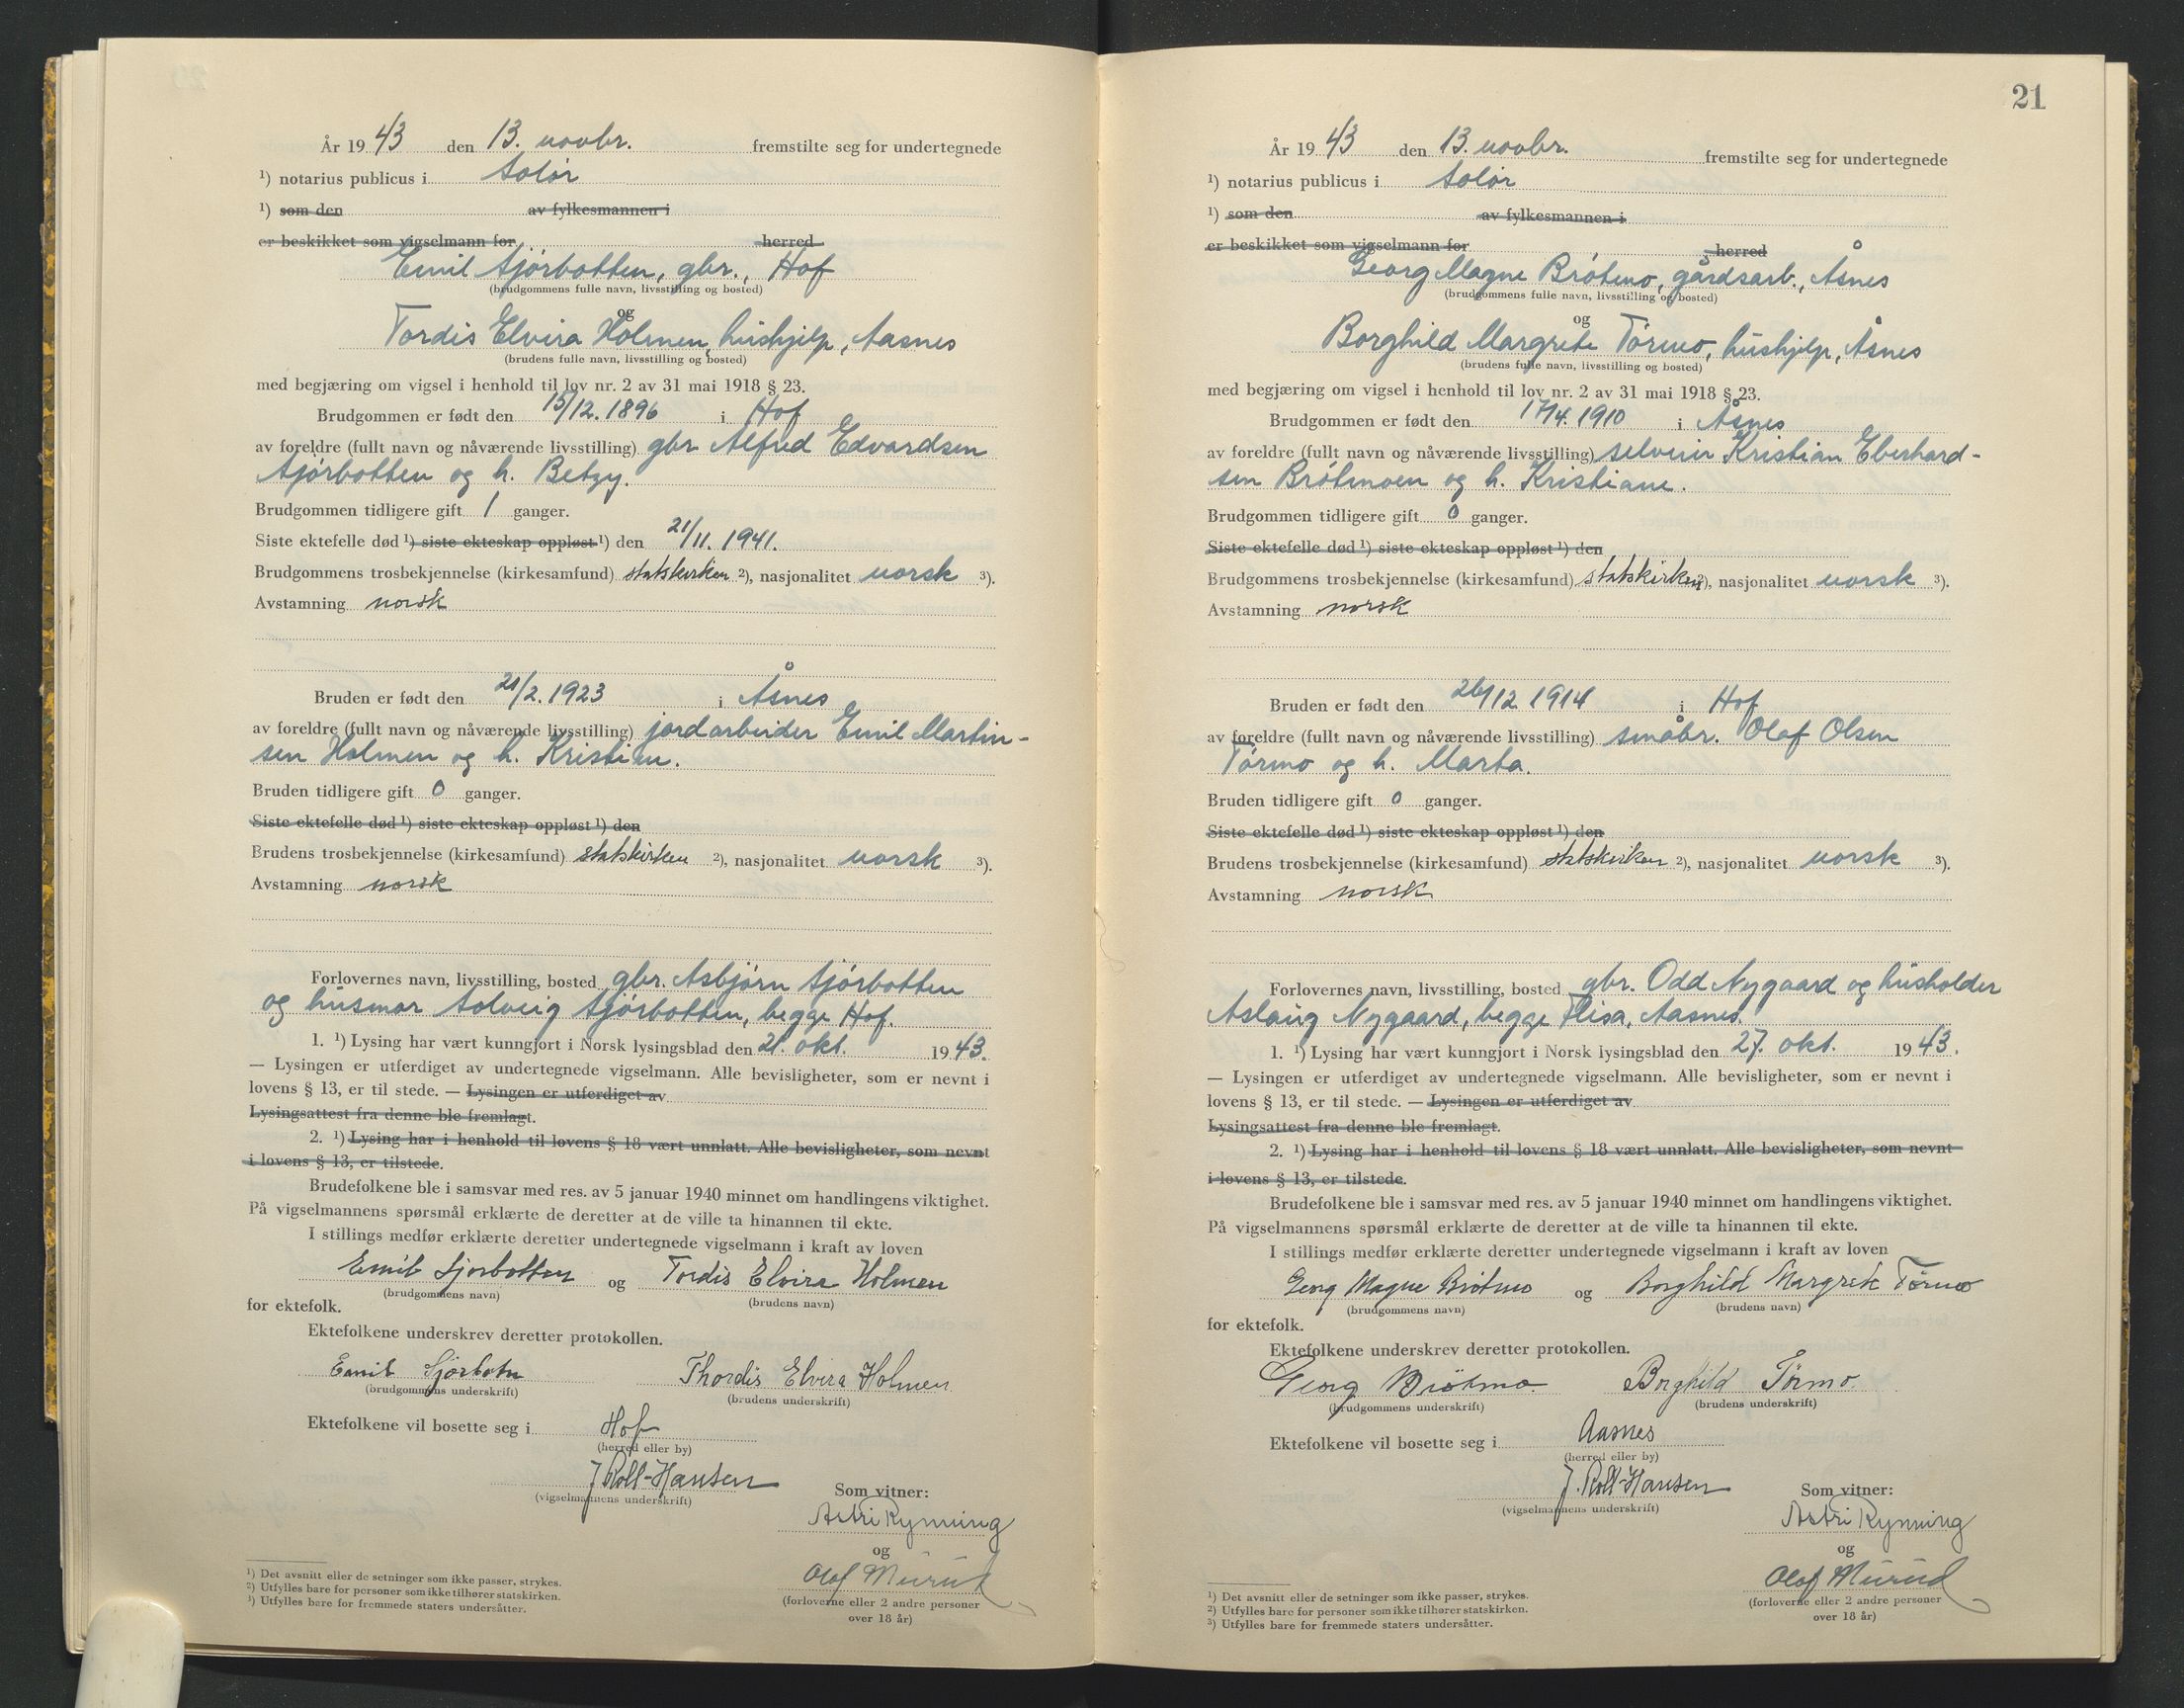 År 19 43 den 13. novbr. fremstilte seg for undertegnede
¹) notarius publicus i Solør
¹) som den av fylkesmannen i
er beskikket som vigselmann for herred
Emil Sjørbotten, gbr., Hof
(brudgommens fulle navn, livsstilling og bosted)
og
Tordis Elvira Holmen, hushjelp, Aasnes
(brudens fulle navn, livsstilling og bosted)
med begjæring om vigsel i henhold til lov nr. 2 av 31 mai 1918 § 23.
Brudgommen er født den 15/12. 1896 i Hof
av foreldre (fullt navn og nåværende livsstilling) gbr Alfred Edvardsen
Sjørbotten og h. Betzy.
Brudgommen tidligere gift 1 ganger.
Siste ektefelle død ¹) siste ekteskap oppløst ¹) den 21/11. 1941.
Brudgommens trosbekjennelse (kirkesamfund) statskirken ²), nasjonalitet norsk ³).
Avstamning norsk
Bruden er født den 21/2. 1923 i Åsnes
av foreldre (fullt navn og nåværende livsstilling) jordarbeider Emil Martin-
sen Holmen og h. Kristine.
Bruden tidligere gift 0 ganger.
Siste ektefelle død ¹) siste ekteskap oppløst ¹) den
Brudens trosbekjennelse (kirkesamfund) statskirken ²), nasjonalitet norsk ³).
Avstamning norsk
Forlovernes navn, livsstilling, bosted gbr. Asbjørn Sjørbotten
og husmor Solveig Sjørbotten, begge Hof.
1. ¹) Lysing har vært kunngjort i Norsk lysingsblad den 21. okt. 19 43.
— Lysingen er utferdiget av undertegnede vigselmann. Alle bevisligheter, som er nevnt i
lovens § 13, er til stede. — Lysingen er utferdiget av
Lysingsattest fra denne ble fremlagt.
2. ¹) Lysing har i henhold til lovens § 18 vært unnlatt. Alle bevisligheter, som nevnt
i lovens § 13, er tilstede.
Brudefolkene ble i samsvar med res. av 5 januar 1940 minnet om handlingens viktighet.
På vigselmannens spørsmål erklærte de deretter at de ville ta hinannen til ekte.
I stillings medfør erklærte deretter undertegnede vigselmann i kraft av loven
Emil Sjørbotten og Tordis Elvira Holmen
(brudgommens navn) (brudens navn)
for ektefolk.
Ektefolkene underskrev deretter protokollen.
Emil Sjørbotn Thordis Elvira Holmen
(brudgommens underskrift) (brudens underskrift)
Ektefolkene vil bosette seg i Hof
(herred eller by)
J. Roll-Hansen
(vigselmannens underskrift)
Som vitner:
Astri Rynning
og
Olof Murud
(forloverne eller 2 andre personer
over 18 år)
¹) Det avsnitt eller de setninger som ikke passer, strykes.
²) Utfylles bare for personer som ikke tilhører statskirken.
³) Utfylles bare for fremmede staters undersåtter.
21
År 19 43 den 13. novbr. fremstilte seg for undertegnede
¹) notarius publicus i Solør
¹) som den av fylkesmannen i
er beskikket som vigselmann for herred
Georg Magne Brøtmo, gårdsarb., Åsnes
(brudgommens fulle navn, livsstilling og bosted)
og
Borghild Margrete Tørmo, hushjelp, Åsnes
(brudens fulle navn, livsstilling og bosted)
med begjæring om vigsel i henhold til lov nr. 2 av 31 mai 1918 § 23.
Brudgommen er født den 17/4. 1910 i Åsnes
av foreldre (fullt navn og nåværende livsstilling) selveier Kristian Eberhard-
sen Brøtmoen og h. Kristiane.
Brudgommen tidligere gift 0 ganger.
Siste ektefelle død ¹) siste ekteskap oppløst ¹) den
Brudgommens trosbekjennelse (kirkesamfund) statskirken ²), nasjonalitet norsk ³).
Avstamning norsk
Bruden er født den 26/12. 1914 i Hof
av foreldre (fullt navn og nåværende livsstilling) småbr. Olaf Olsen
Tørmo og h. Marta.
Bruden tidligere gift 0 ganger.
Siste ektefelle død ¹) siste ekteskap oppløst ¹) den
Brudens trosbekjennelse (kirkesamfund) statskirken ²), nasjonalitet norsk ³).
Avstamning norsk
Forlovernes navn, livsstilling, bosted gbr. Odd Nygaard og husholder
Aslaug Nygaard, begge Flisa, Aasnes.
1. ¹) Lysing har vært kunngjort i Norsk lysingsblad den 27. okt. 19 43.
— Lysingen er utferdiget av undertegnede vigselmann. Alle bevisligheter, som er nevnt i
lovens § 13, er til stede. — Lysingen er utferdiget av
Lysingsattest fra denne ble fremlagt.
2. ¹) Lysing har i henhold til lovens § 18 vært unnlatt. Alle bevisligheter, som nevnt
i lovens § 13, er tilstede.
Brudefolkene ble i samsvar med res. av 5 januar 1940 minnet om handlingens viktighet.
På vigselmannens spørsmål erklærte de deretter at de ville ta hinannen til ekte.
I stillings medfør erklærte deretter undertegnede vigselmann i kraft av loven
Georg Magne Brøtmo og Borghild Margrete Tørmo
(brudgommens navn) (brudens navn)
for ektefolk.
Ektefolkene underskrev deretter protokollen.
Georg Brötmo. Borghild Tørmo.
(brudgommens underskrift) (brudens underskrift)
Ektefolkene vil bosette seg i Aasnes
(herred eller by)
J. Roll-Hansen
(vigselmannens underskrift)
Som vitner:
Astri Rynning
og
Olof Murud
(forloverne eller 2 andre personer
over 18 år)
¹) Det avsnitt eller de setninger som ikke passer, strykes.
²) Utfylles bare for personer som ikke tilhører statskirken.
³) Utfylles bare for fremmede staters undersåtter.